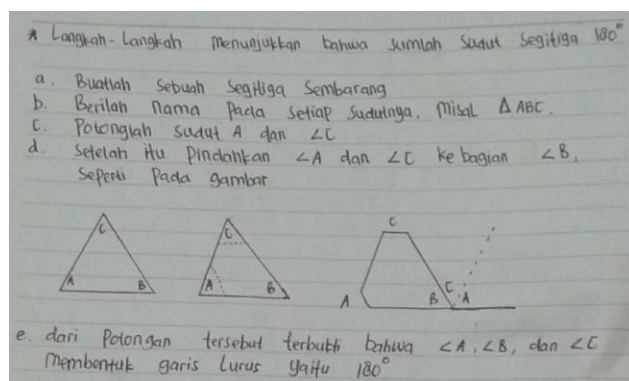 * Langkah-Langkah menunjukkan bahwa sumlah sudut segitiga 180°
a. Buatlah Sebuah Segitiga Sembarang
b. Berilah nama Pada Setiap Sudutnya, misal Δ ABC.
c. Potonglah sudut A dan ∠C
d. Setelah itu Pindahkan ∠A dan ∠C ke bagian ∠B,
Seperti Pada gambar
C
A B
C
A B
C
A B C A
e. dari Potongan tersebut terbukti bahwa ∠A, ∠B, dan ∠C
Membentuk garis Lurus yaitu 180°